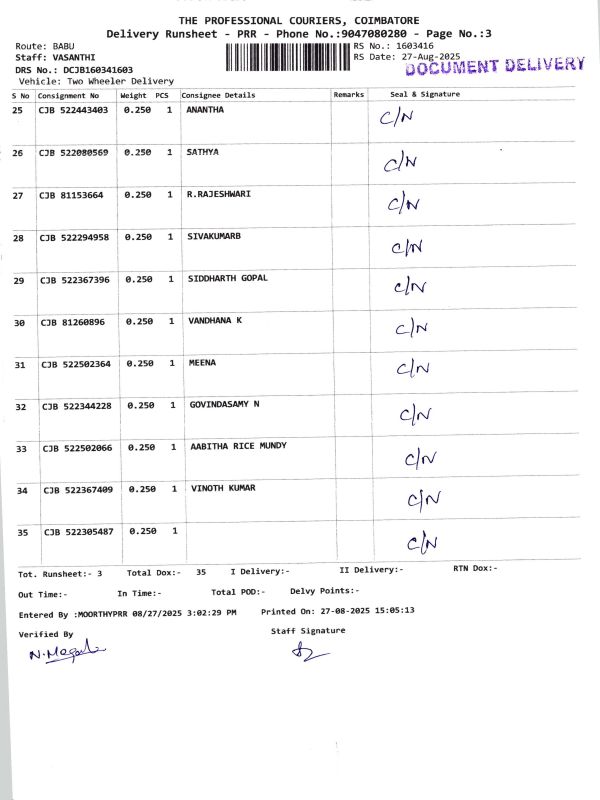 THE PROFESSIONAL COURIERS, COIMBATORE
Delivery Runsheet - PRR - Phone No.:9047080280 - Page No.:3
Route: BABU RS No.: 1603416
Staff: VASANTHI RS Date: 27-Aug-2025
DRS No.: DCJB160341603 DOCUMENT DELIVERY
Vehicle: Two Wheeler Delivery
S No Consignment No Weight PCS Consignee Details Remarks Seal & Signature
25 CJB 522443403 0.250 1 ANANTHA C/N
26 CJB 522080569 0.250 1 SATHYA C/N
27 CJB 81153664 0.250 1 R.RAJESHWARI C/N
28 CJB 522294958 0.250 1 SIVAKUMARB C/N
29 CJB 522367396 0.250 1 SIDDHARTH GOPAL C/N
30 CJB 81260896 0.250 1 VANDHANA K C/N
31 CJB 522502364 0.250 1 MEENA C/N
32 CJB 522344228 0.250 1 GOVINDASAMY N C/N
33 CJB 522502066 0.250 1 AABITHA RICE MUNDY C/N
34 CJB 522367409 0.250 1 VINOTH KUMAR C/N
35 CJB 522305487 0.250 1 C/N
Tot. Runsheet:- 3 Total Dox:- 35 I Delivery:- II Delivery:- RTN Dox:-
Out Time:- In Time:- Total POD:- Delvy Points:-
Entered By :MOORTHYPRR 08/27/2025 3:02:29 PM Printed On: 27-08-2025 15:05:13
Verified By Staff Signature